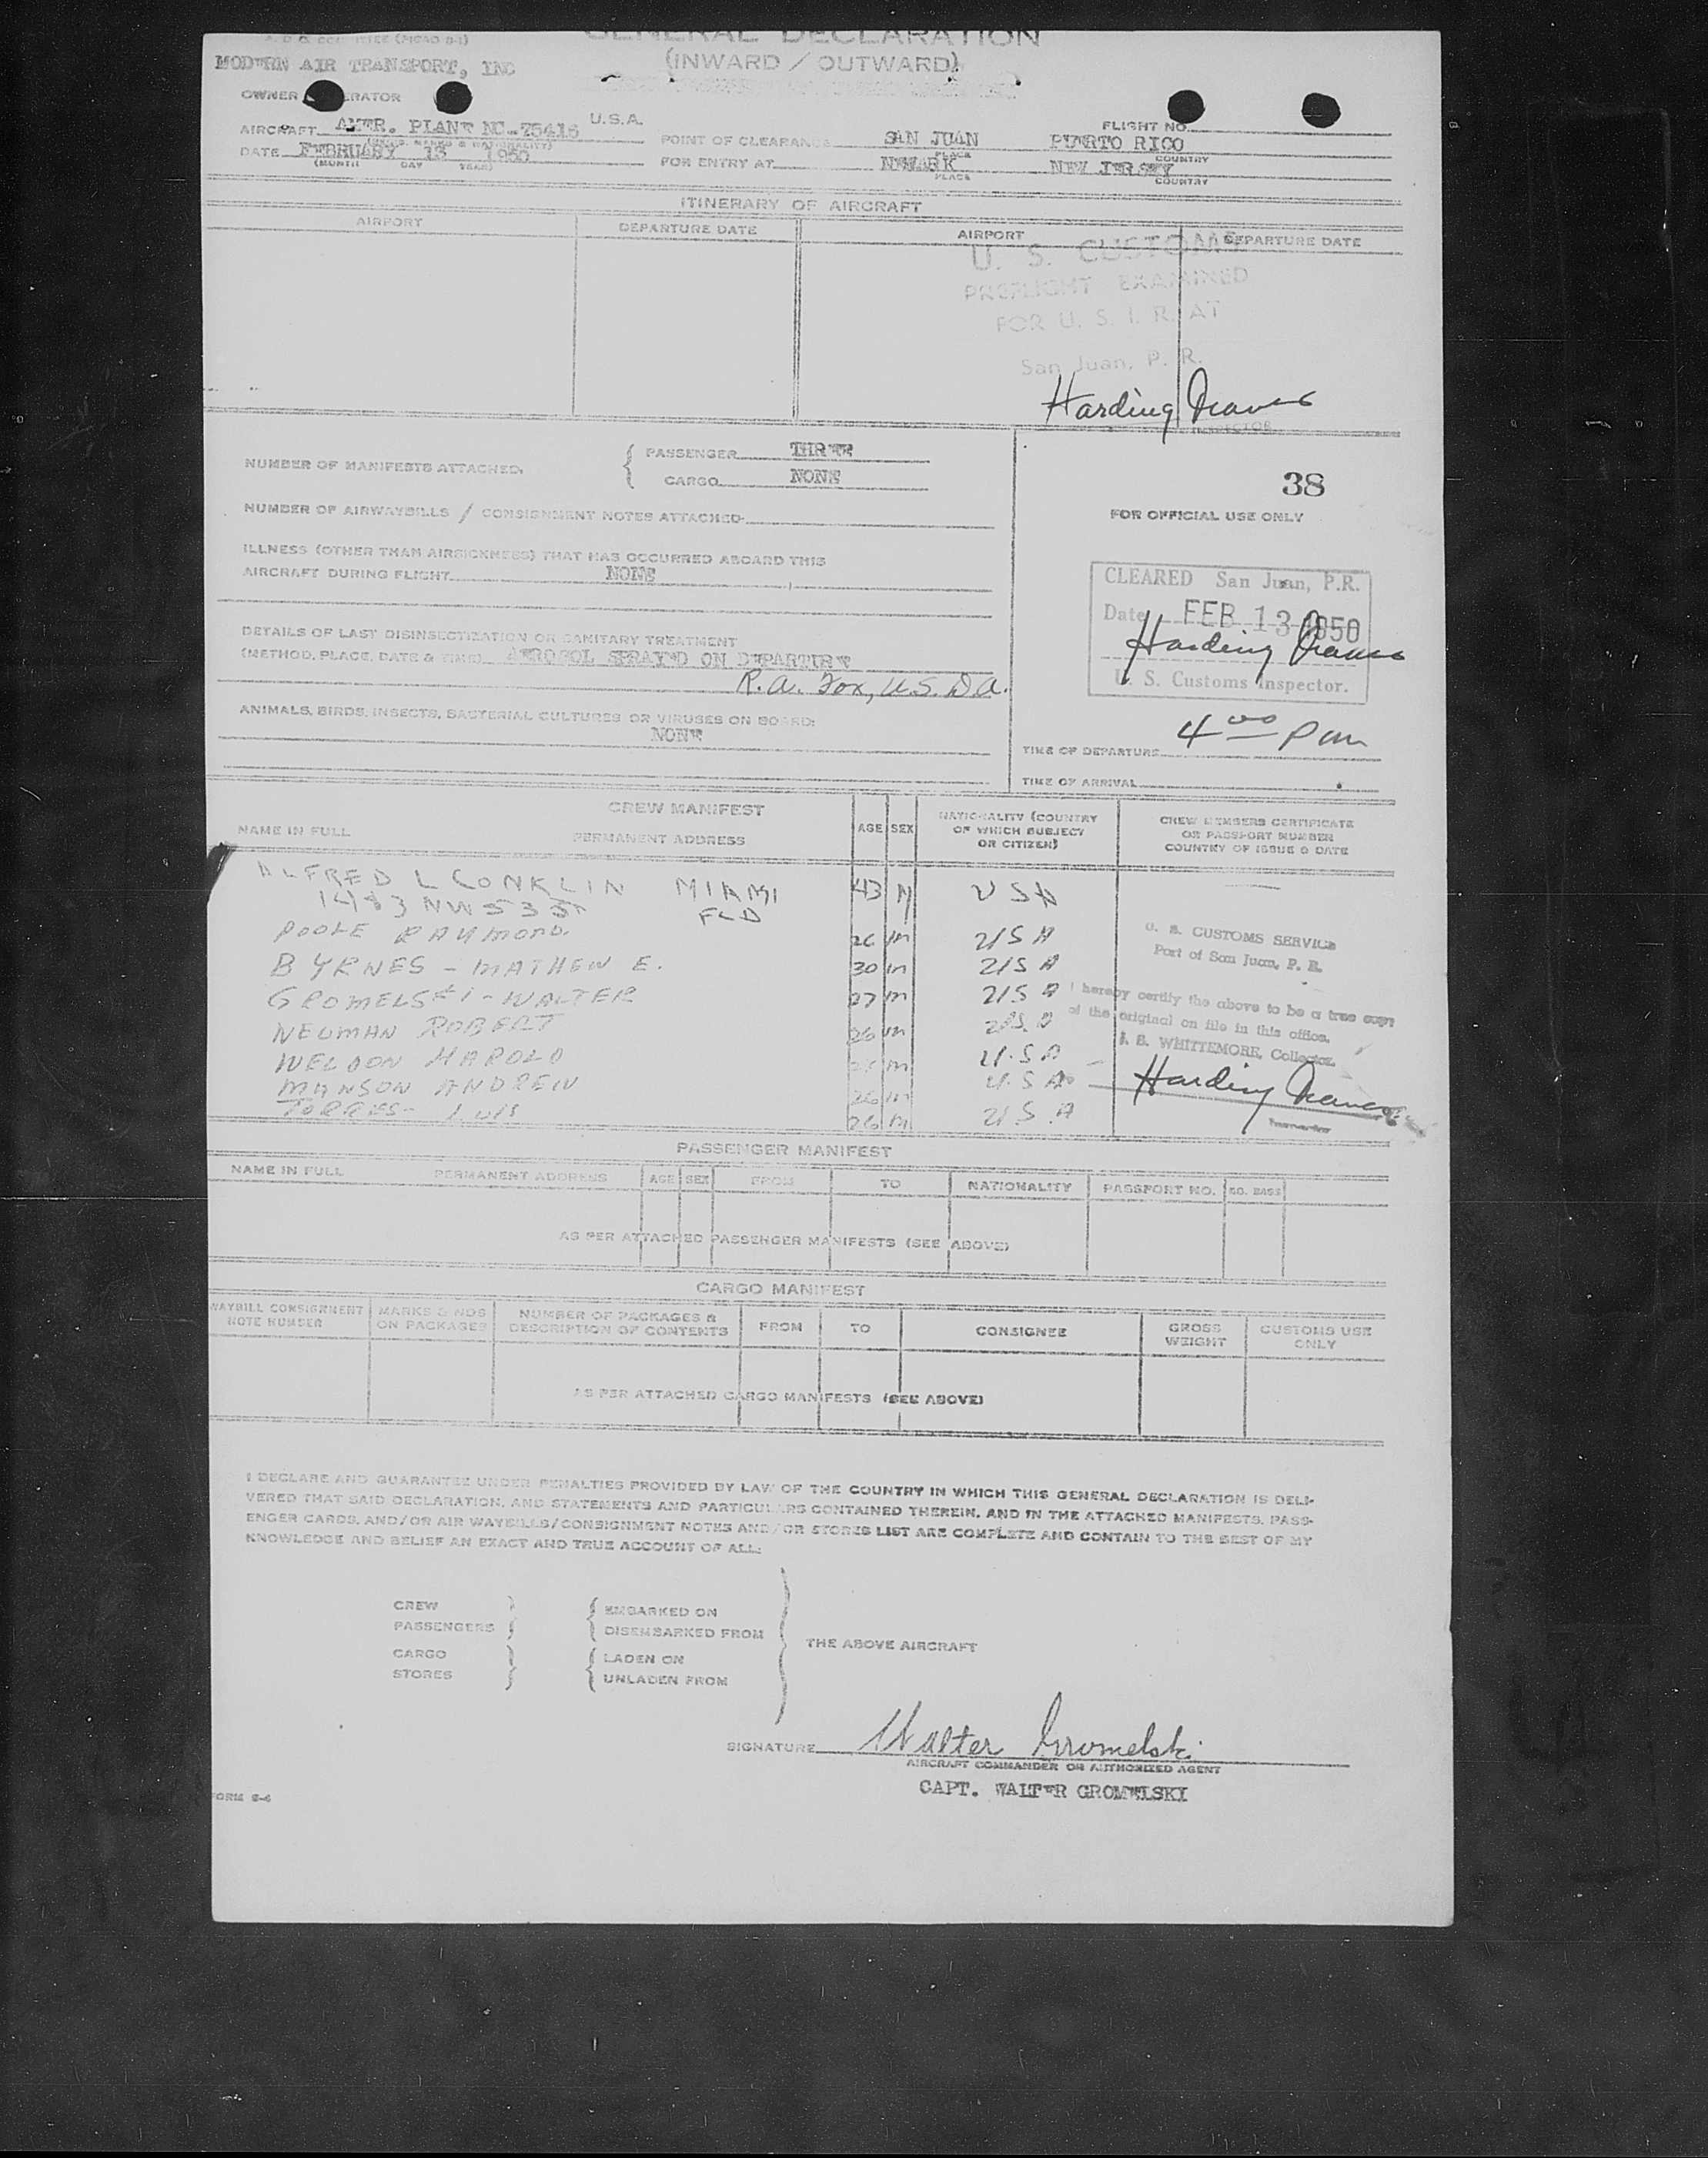 GENERAL DECLARATION
(INWARD / OUTWARD)
MODERN AIR TRANSPORT, INC
OWNER OPERATOR
AIRCRAFT AMER. PLANE NC-75416 U.S.A. FLIGHT NO.
POINT OF CLEARANCE SAN JUAN PUERTO RICO
PLACE COUNTRY
DATE FEBRUARY 13 1950 FOR ENTRY AT NEWARK NEW JERSEY
(MONTH DAY YEAR) PLACE COUNTRY
ITINERARY OF AIRCRAFT
AIRPORT DEPARTURE DATE AIRPORT DEPARTURE DATE
U. S. CUSTOMS
PREFLIGHT EXAMINED
FOR U. S. I. R. AT
San Juan, P. R.
Harding
INSPECTOR
NUMBER OF MANIFESTS ATTACHED. PASSENGER THREE
CARGO NONE
38
NUMBER OF AIRWAYBILLS / CONSIGNMENT NOTES ATTACHED
FOR OFFICIAL USE ONLY
ILLNESS (OTHER THAN AIRSICKNESS) THAT HAS OCCURRED ABOARD THIS
AIRCRAFT DURING FLIGHT NONE
CLEARED San Juan, P.R.
Date FEB 13 1950
Harding
U. S. Customs Inspector.
DETAILS OF LAST DISINSECTIZATION OR SANITARY TREATMENT
(METHOD, PLACE, DATE & TIME) AEROSOL SPRAYED ON DEPARTURE
R. A. Fox, U.S.D.A.
ANIMALS, BIRDS, INSECTS, BACTERIAL CULTURES OR VIRUSES ON BOARD:
NONE
TIME OF DEPARTURE 4 00 pm
TIME OF ARRIVAL
CREW MANIFEST
NAME IN FULL PERMANENT ADDRESS AGE SEX NATIONALITY (COUNTRY OF WHICH SUBJECT OR CITIZEN) CREW MEMBERS CERTIFICATE OR PASSPORT NUMBER COUNTRY OF ISSUE & DATE
ALFRED L CONKLIN MIAMI 43 M USA
1483 NW 53 ST
POOLE RAYMOND. 26 M USA
BYRNES - MATHEW E. 30 M USA
GROMELSKI - WALTER 27 M USA
NEUMAN ROBERT 26 M USA
WELDON HAROLD M U.S A
MANSON ANDREW 26 M U.S A
TORRES - LUIS 26 M USA
U. S. CUSTOMS SERVICE
Port of San Juan, P. R.
I hereby certify the above to be a true copy
of the original on file in this office.
J. B. WHITTEMORE, Collector.
Harding
PASSENGER MANIFEST
NAME IN FULL PERMANENT ADDRESS AGE SEX FROM TO NATIONALITY PASSPORT NO. NO. BAGS
AS PER ATTACHED PASSENGER MANIFESTS (SEE ABOVE)
CARGO MANIFEST
WAYBILL CONSIGNMENT NOTE NUMBER MARKS & NOS ON PACKAGES NUMBER OF PACKAGES & DESCRIPTION OF CONTENTS FROM TO CONSIGNEE GROSS WEIGHT CUSTOMS USE ONLY
AS PER ATTACHED CARGO MANIFESTS (SEE ABOVE)
I DECLARE AND GUARANTEE UNDER PENALTIES PROVIDED BY LAW OF THE COUNTRY IN WHICH THIS GENERAL DECLARATION IS DELI-
VERED THAT SAID DECLARATION, AND STATEMENTS AND PARTICULARS CONTAINED THEREIN, AND IN THE ATTACHED MANIFESTS, PASS-
ENGER CARDS, AND/OR AIR WAYBILLS/CONSIGNMENT NOTES AND/OR STORES LIST ARE COMPLETE AND CONTAIN TO THE BEST OF MY
KNOWLEDGE AND BELIEF AN EXACT AND TRUE ACCOUNT OF ALL:
CREW EMBARKED ON
PASSENGERS DISEMBARKED FROM
THE ABOVE AIRCRAFT
CARGO LADEN ON
STORES UNLADEN FROM
SIGNATURE Walter Gromelski
AIRCRAFT COMMANDER OR AUTHORIZED AGENT
CAPT. WALTER GROMELSKI
FORM 5-4